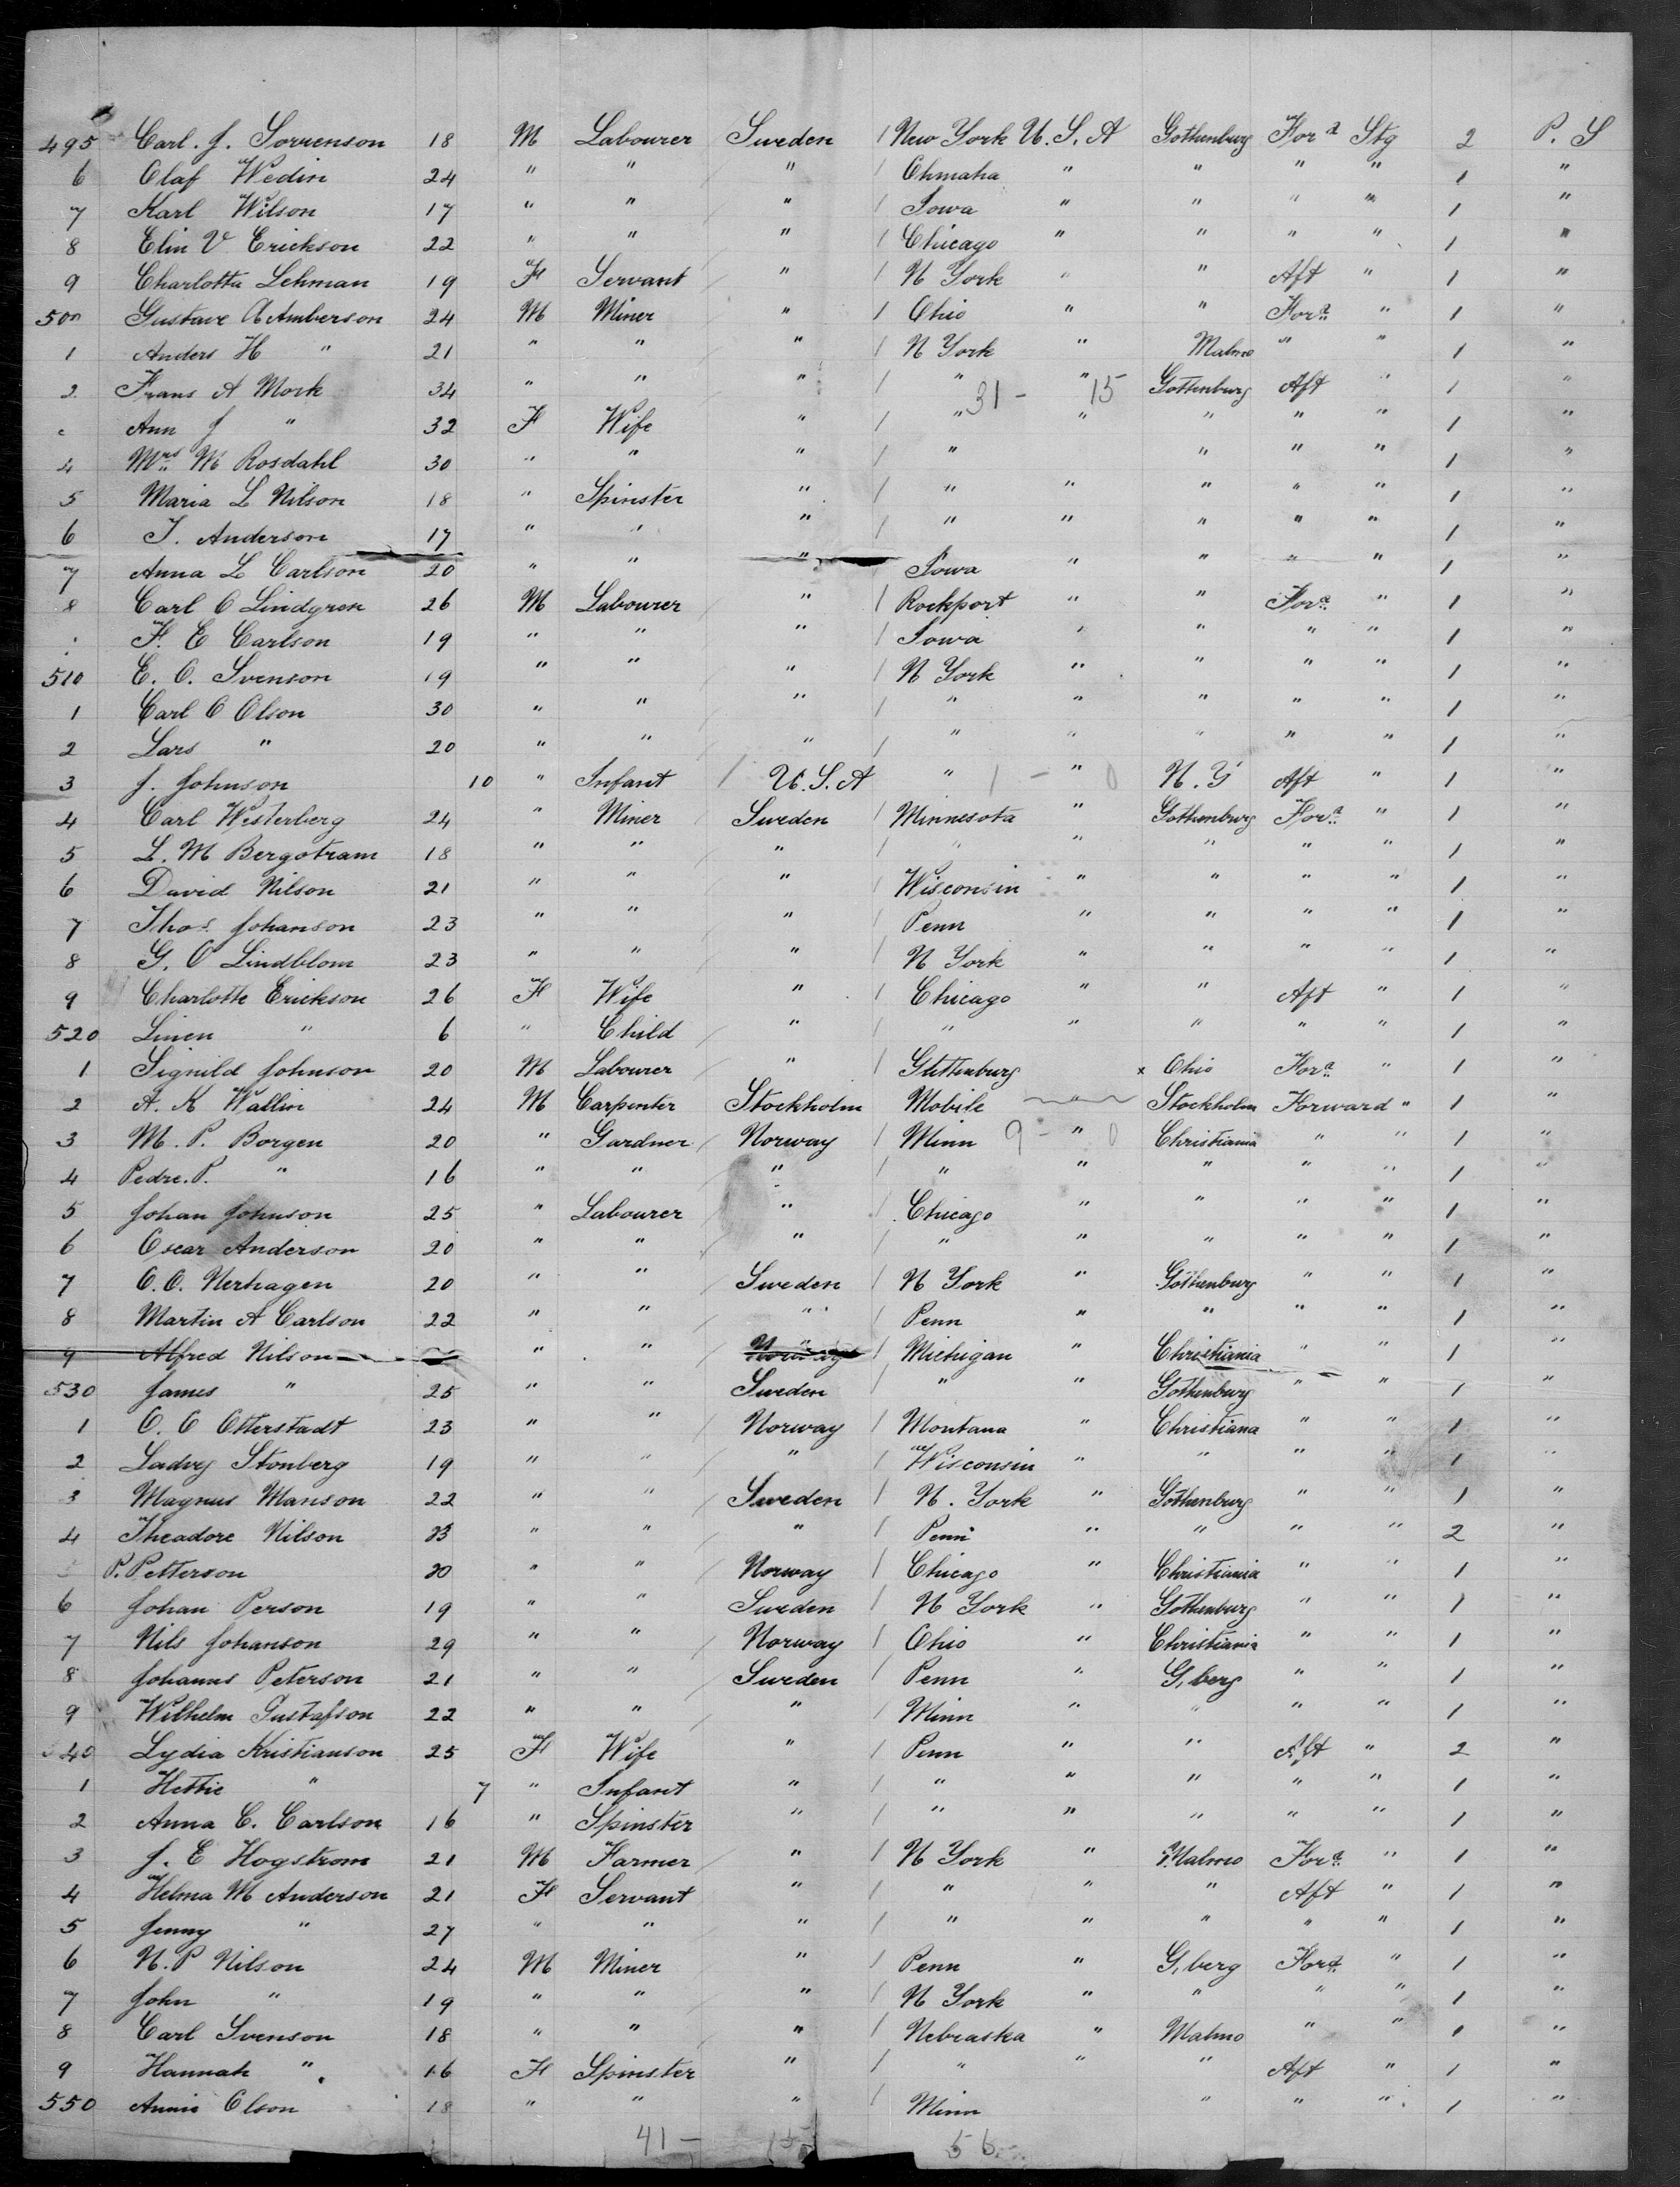 495 Carl. J. Sorrenson 18 M Labourer Sweden / New York U.S.A Gothenburg For'd Stg 2 P.S
6 Olaf Wedin 24 " " " / Ohmaha " " " " 1 "
7 Karl Wilson 17 " " " / Iowa " " " " 1 "
8 Elin V Erickson 22 " " " / Chicago " " " " 1 "
9 Charlotta Lehman 19 F Servant " / N York " " Aft " 1 "
500 Gustave A Amberson 24 M Miner " / Ohio " " For'd " 1 "
1 Anders H " 21 " " " / N York " Malmo " " 1 "
2 Frans A Mork 34 " " " / " " Gothenburg Aft " 1 "
31 - 15
Ann J " 32 F Wife " / " " " " " 1 "
4 Mrs M Rosdahl 30 " " " / " " " " 1 "
5 Maria L Nilson 18 " Spinster " / " " " " " 1 "
6 T. Anderson 17 " " " / " " " " " 1 "
7 Anna L Carlson 20 " " " Iowa " " " " 1 "
8 Carl O Lindgren 26 M Labourer " / Rockport " " For'd " 1 "
F. E Carlson 19 " " " / Iowa " " " " 1 "
510 E. O. Svenson 19 " " " / N York " " " " 1 "
1 Carl O Olson 30 " " " / " " " " " 1 "
2 Lars " 20 " " " / " " " " " 1 "
3 J. Johnson 10 " Infant / U.S.A " 1 - " 0 N.Y Aft " 1 "
4 Carl Westerberg 24 " Miner Sweden / Minnesota " Gothenburg For'd " 1 "
5 L. M Bergotram 18 " " " / " " " " " 1 "
6 David Nilson 21 " " " / Wisconsin " " " " 1 "
7 Thos Johanson 23 " " " / Penn " " " " 1 "
8 G. O Lindblom 23 " " " / N York " " " " 1 "
9 Charlotte Erickson 26 F Wife " / Chicago " " Aft " 1 "
520 Linen " 6 " Child " / " " " " " 1 "
1 Signild Johnson 20 M Labourer " / Guttenburg x Ohio For'd " 1 "
2 A. K Wallin 24 M Carpenter Stockholm Mobile " Stockholm Forward " 1 "
3 M. P. Borgen 20 " Gardner Norway / Minn 9 - " 0 Christiania " " 1 "
4 Pedre. P. " 16 " " " / " " " " " 1 "
5 Johan Johnson 25 " Labourer " / Chicago " " " " 1 "
6 Oscar Anderson 20 " " " / " " " " " 1 "
7 O. O. Nerhagen 20 " " Sweden / N York " Gothenburg " " 1 "
8 Martin A Carlson 22 " " " / Penn " " " " 1 "
9 Alfred Nilson " " Norway / Michigan " Christiania " " 1 "
530 James " 25 " " Sweden / " " Gothenburg " " 1 "
1 O. O Otterstadt 23 " " Norway / Montana " Christiana " " 1 "
2 Ludvg Stonberg 19 " " " / Wisconsin " " " " 1 "
3 Magnus Manson 22 " " Sweden / N. York " Gothenburg " " 1 "
4 Theadore Nilson 23 " " " / Penn " " " " 2 "
5 P. Petterson 20 " " Norway / Chicago " Christiania " " 1 "
6 Johan Person 19 " " Sweden / N York " Gothenburg " " 1 "
7 Nils Johanson 29 " " Norway / Ohio " Christiania " " 1 "
8 Johanns Peterson 21 " " Sweden / Penn " G,berg " " 1 "
9 Wilhelm Gustafson 22 " " " / Minn " " " " 1 "
540 Lydia Kristianson 25 F Wife " / Penn " " Aft " 2 "
1 Hettie " 7 " Infant " / " " " " " 1 "
2 Anna C. Carlson 16 " Spinster " / " " " " " 1 "
3 J. E Hogstrom 21 M Farmer " / N York " Malmo For'd " 1 "
4 Helma M Anderson 21 F Servant " / " " " Aft " 1 "
5 Jenny " 27 " " " / " " " " " 1 "
6 N. P Nilson 24 M Miner " / Penn " G,berg For'd " 1 "
7 John " 19 " " " / N York " " " " 1 "
8 Carl Svenson 18 " " " / Nebraska " Malmo " " 1 "
9 Hannah " 16 F Spinster " / " " " Aft " 1 "
550 Annie Olson 18 " " " / Minn " " " 1 "
41 - 15 56 -